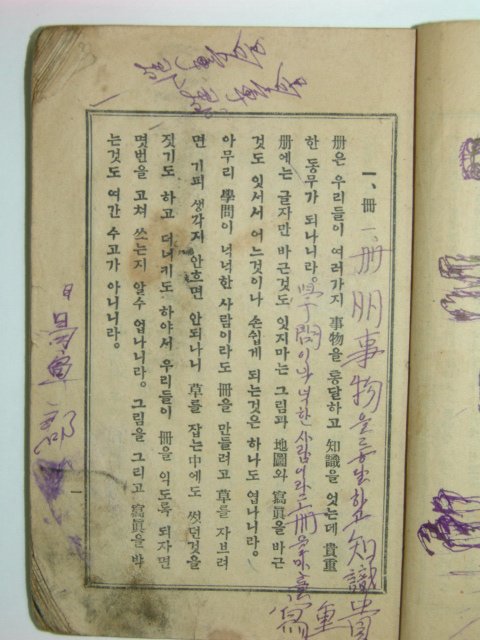 一、冊
冊은 우리들이 여러가지 事物을 통달하고 知識을 엇는데 貴重
한 동무가 되나니라。
冊에는 글자만 바근것도 잇지마는 그림과 地圖와 寫眞을 바근
것도 잇서서 어느것이나 손쉽게 되는것은 하나도 업나니라。
아무리 學問이 넉넉한 사람이라도 冊을 만들려고 草를 자브려
면 기피 생각지 안흐면 안되나니 草를 잡는中에도 썻던것을
짓기도 하고 더너키도 하야서 우리들이 冊을 익도록 되자면
몃번을 고쳐 쓰는지 알수 업나니라。 그림을 그리고 寫眞을 박
는것도 여간 수고가 아니니라。
一
一、冊
冊 事物을 통달하고 知識 貴
重
學問이 넉넉한 사람이라도 冊을 만
寫